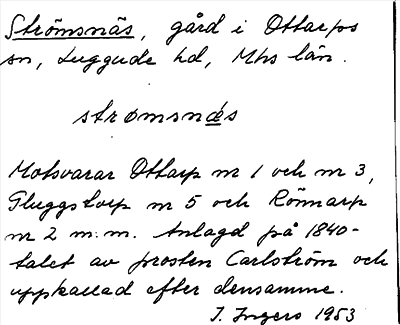 Strömsnäs, gård i Ottarps
sn, Luggude hd, Mhs län.
strömsnæ̀s
Motsvarar Ottarp nr 1 och nr 3,
Gluggstorp nr 5 och Rönnarp
nr 2 m.m. Anlagd på 1840-
talet av prosten Carlström och
uppkallad efter densamme.
I. Ingers 1953